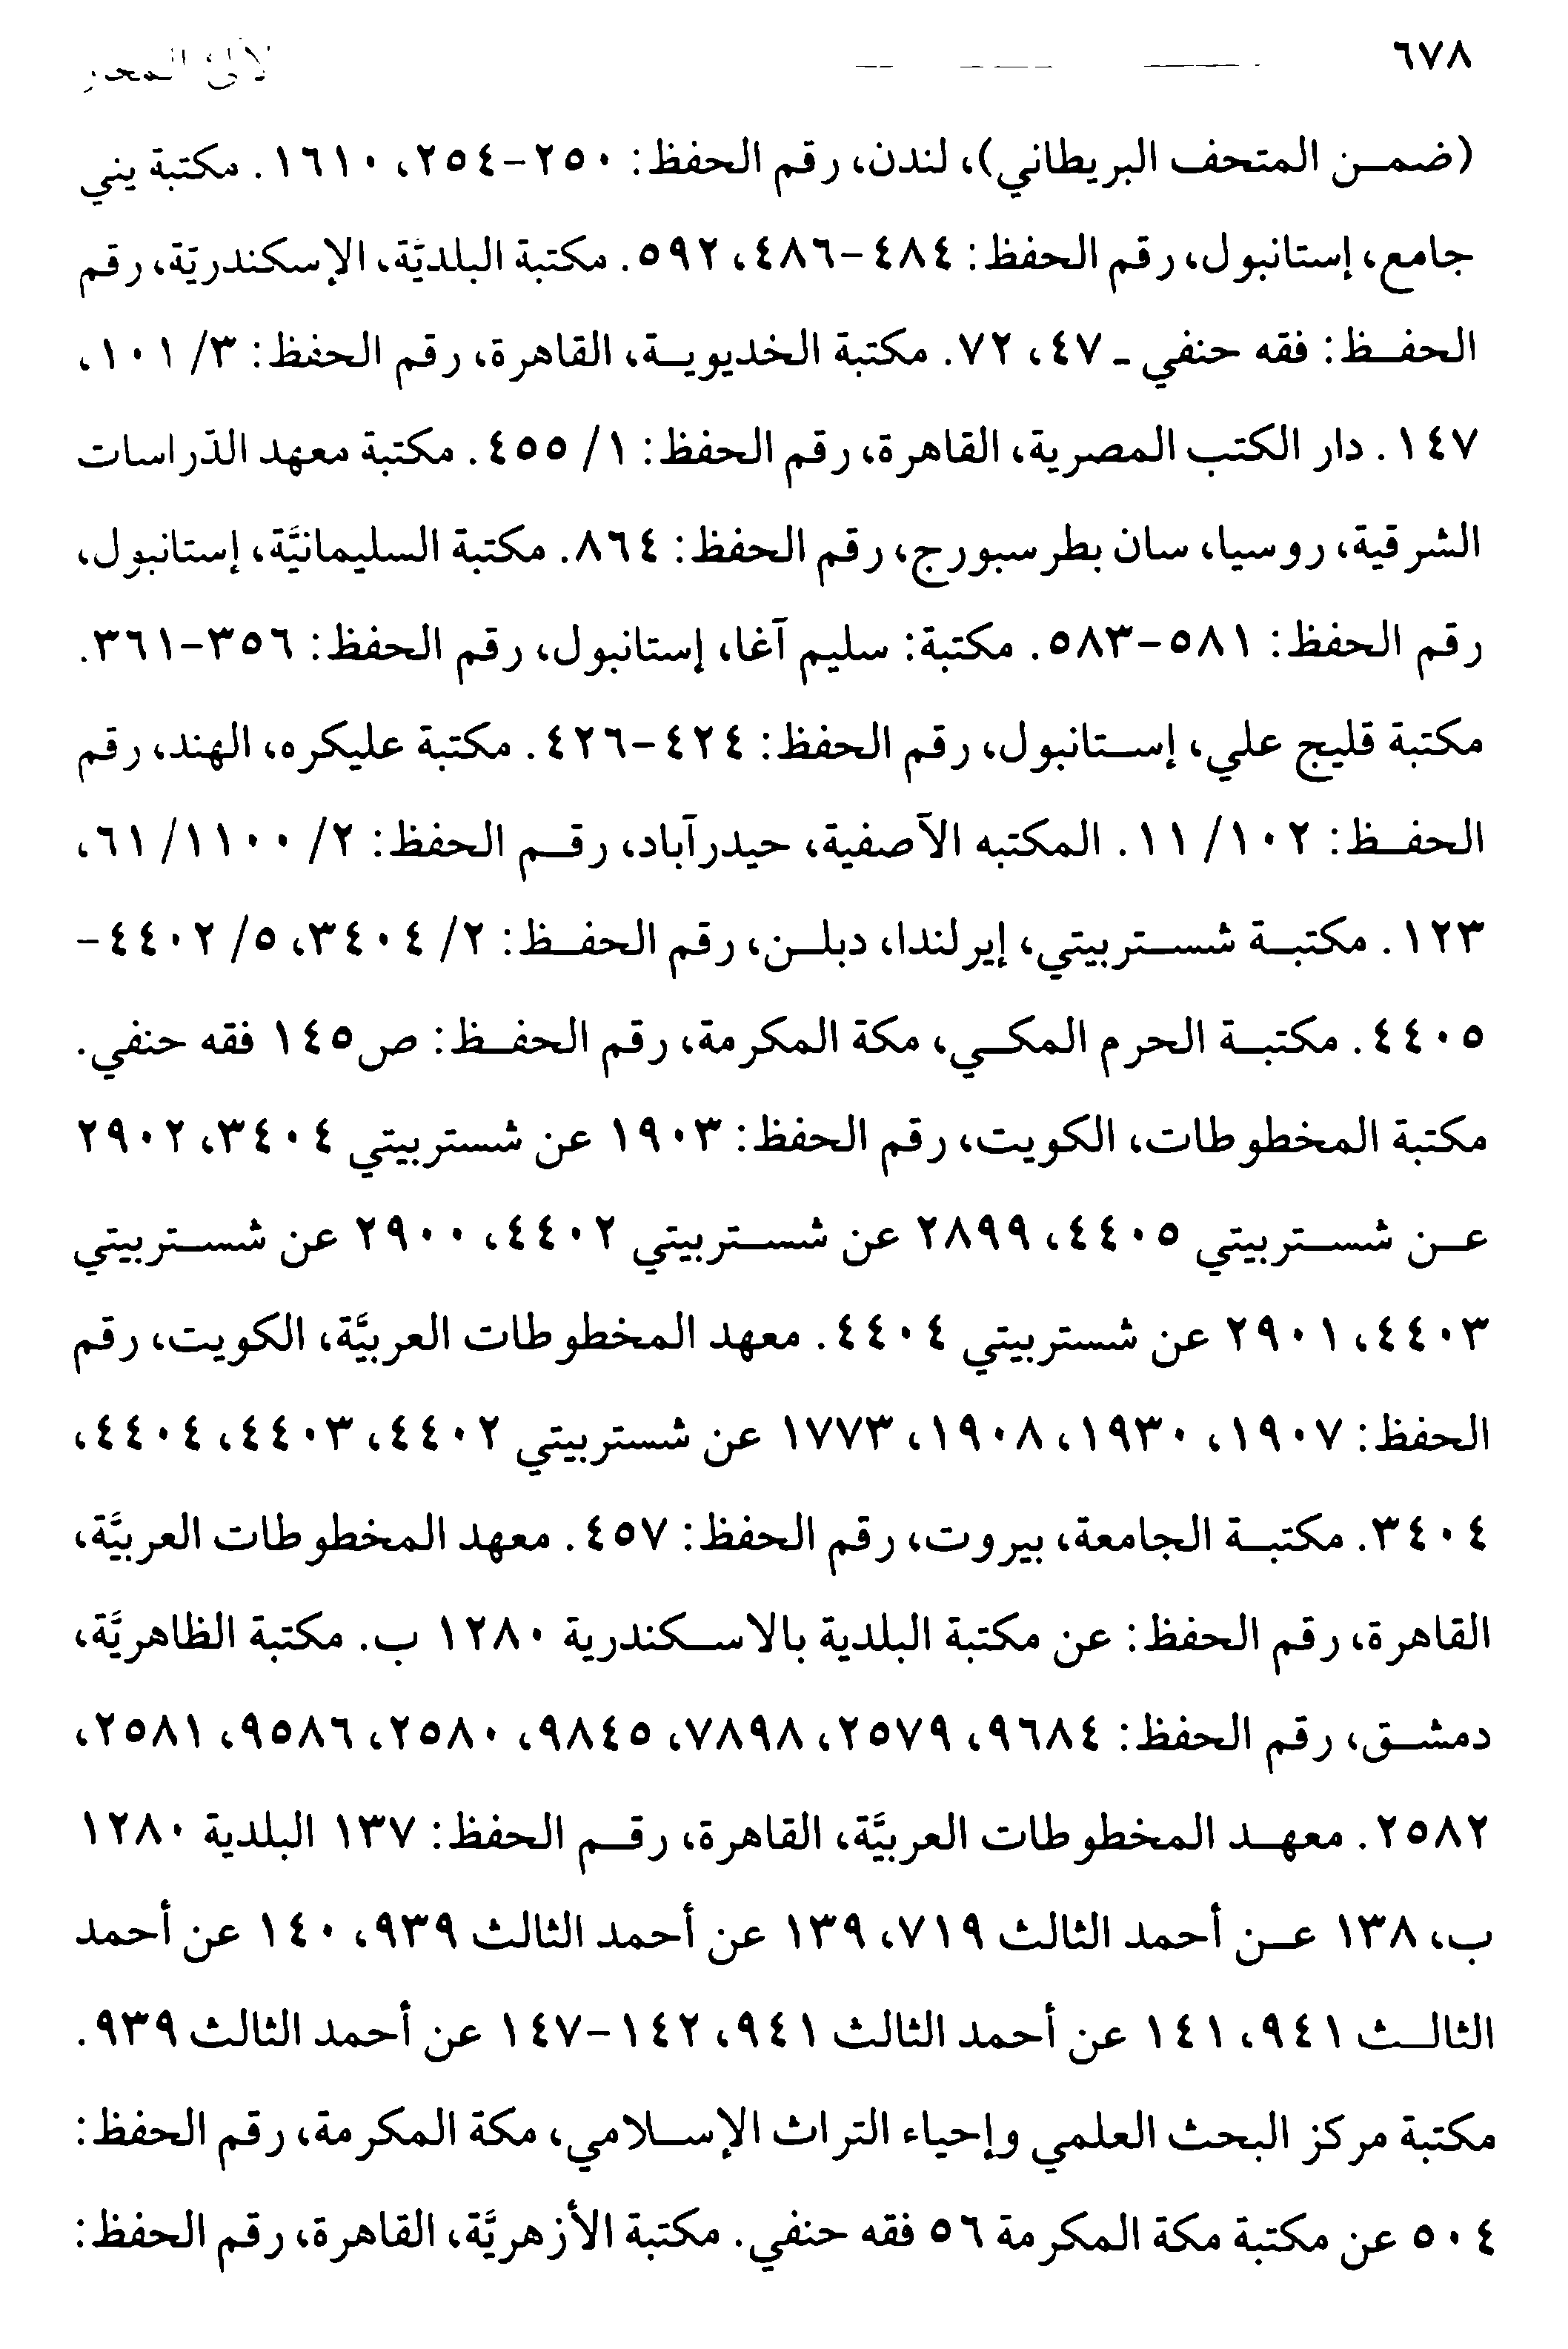 ٦٧٨
لآلئ المحار
(ضمن المتحف البريطاني)، لندن، رقم الحفظ: ٢٥٠-٢٥٤، ١٦١٠. مكتبة يني
جامع، إستانبول، رقم الحفظ: ٤٨٤-٤٨٦، ٥٩٢. مكتبة البلديَّة، الإسكندريَّة، رقم
الحفظ: فقه حنفي - ٤٧، ٧٢. مكتبة الخديوية، القاهرة، رقم الحفظ: ٣/ ١٠١،
١٤٧. دار الكتب المصرية، القاهرة، رقم الحفظ: ١/ ٤٥٥. مكتبة معهد الدّراسات
الشرقية، روسيا، سان بطرسبورج، رقم الحفظ: ٨٦٤. مكتبة السليمانيَّة، إستانبول،
رقم الحفظ: ٥٨١-٥٨٣. مكتبة: سليم آغا، إستانبول، رقم الحفظ: ٣٥٦-٣٦١.
مكتبة قليج علي، إستانبول، رقم الحفظ: ٤٢٤-٤٢٦. مكتبة عليكره، الهند، رقم
الحفظ: ١٠٢/ ١١. المكتبه الآصفية، حيدرآباد، رقم الحفظ: ٢/ ١١٠٠/ ٦١،
١٢٣. مكتبة شستربيتي، إيرلندا، دبلن، رقم الحفظ: ٢/ ٣٤٠٤، ٥/ ٤٤٠٢-
٤٤٠٥. مكتبة الحرم المكي، مكة المكرمة، رقم الحفظ: ص١٤٥ فقه حنفي.
مكتبة المخطوطات، الكويت، رقم الحفظ: ١٩٠٣ عن شستربيتي ٣٤٠٤، ٢٩٠٢
عن شستربيتي ٤٤٠٥، ٢٨٩٩ عن شستربيتي ٤٤٠٢، ٢٩٠٠ عن شستربيتي
٤٤٠٣، ٢٩٠١ عن شستربيتي ٤٤٠٤. معهد المخطوطات العربيَّة، الكويت، رقم
الحفظ: ١٩٠٧، ١٩٣٠، ١٩٠٨، ١٧٧٣ عن شستربيتي ٤٤٠٢، ٤٤٠٣، ٤٤٠٤،
٣٤٠٤. مكتبة الجامعة، بيروت، رقم الحفظ: ٤٥٧. معهد المخطوطات العربيَّة،
القاهرة، رقم الحفظ: عن مكتبة البلدية بالاسكندرية ١٢٨٠ ب. مكتبة الظاهريَّة،
دمشق، رقم الحفظ: ٩٦٨٤، ٢٥٧٩، ٧٨٩٨، ٩٨٤٥، ٢٥٨٠، ٩٥٨٦، ٢٥٨١،
٢٥٨٢. معهد المخطوطات العربيَّة، القاهرة، رقم الحفظ: ١٣٧ البلدية ١٢٨٠
ب، ١٣٨ عن أحمد الثالث ٧١٩، ١٣٩ عن أحمد الثالث ٩٣٩، ١٤٠ عن أحمد
الثالث ٩٤١، ١٤١ عن أحمد الثالث ٩٤١، ١٤٢-١٤٧ عن أحمد الثالث ٩٣٩.
مكتبة مركز البحث العلمي وإحياء التراث الإسلامي، مكة المكرمة، رقم الحفظ:
٥٠٤ عن مكتبة مكة المكرمة ٥٦ فقه حنفي. مكتبة الأزهريَّة، القاهرة، رقم الحفظ: